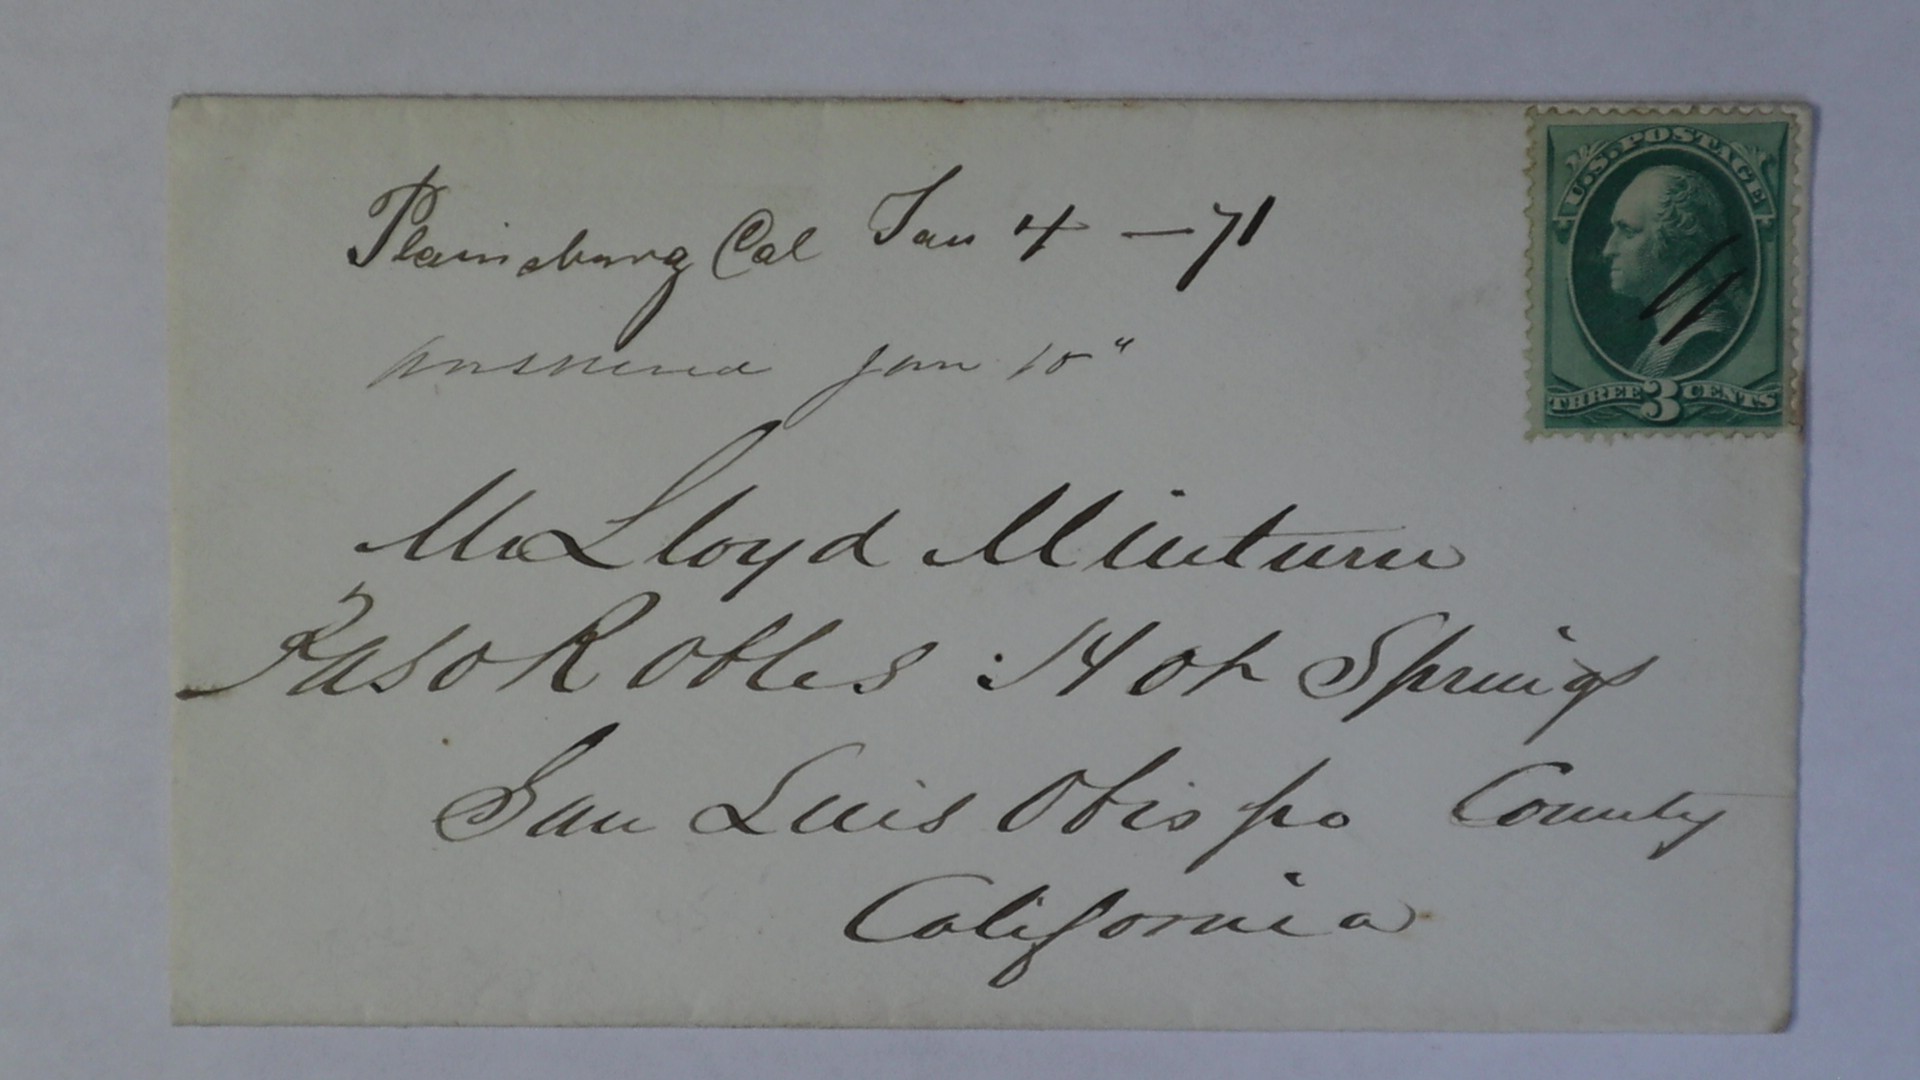 Plainsburg Cal Jan 4 — 71
answered Jan 10"
U.S. POSTAGE
THREE 3 CENTS
Mr Lloyd Minturn
Paso Robles Hot Springs
San Luis Obispo County
California